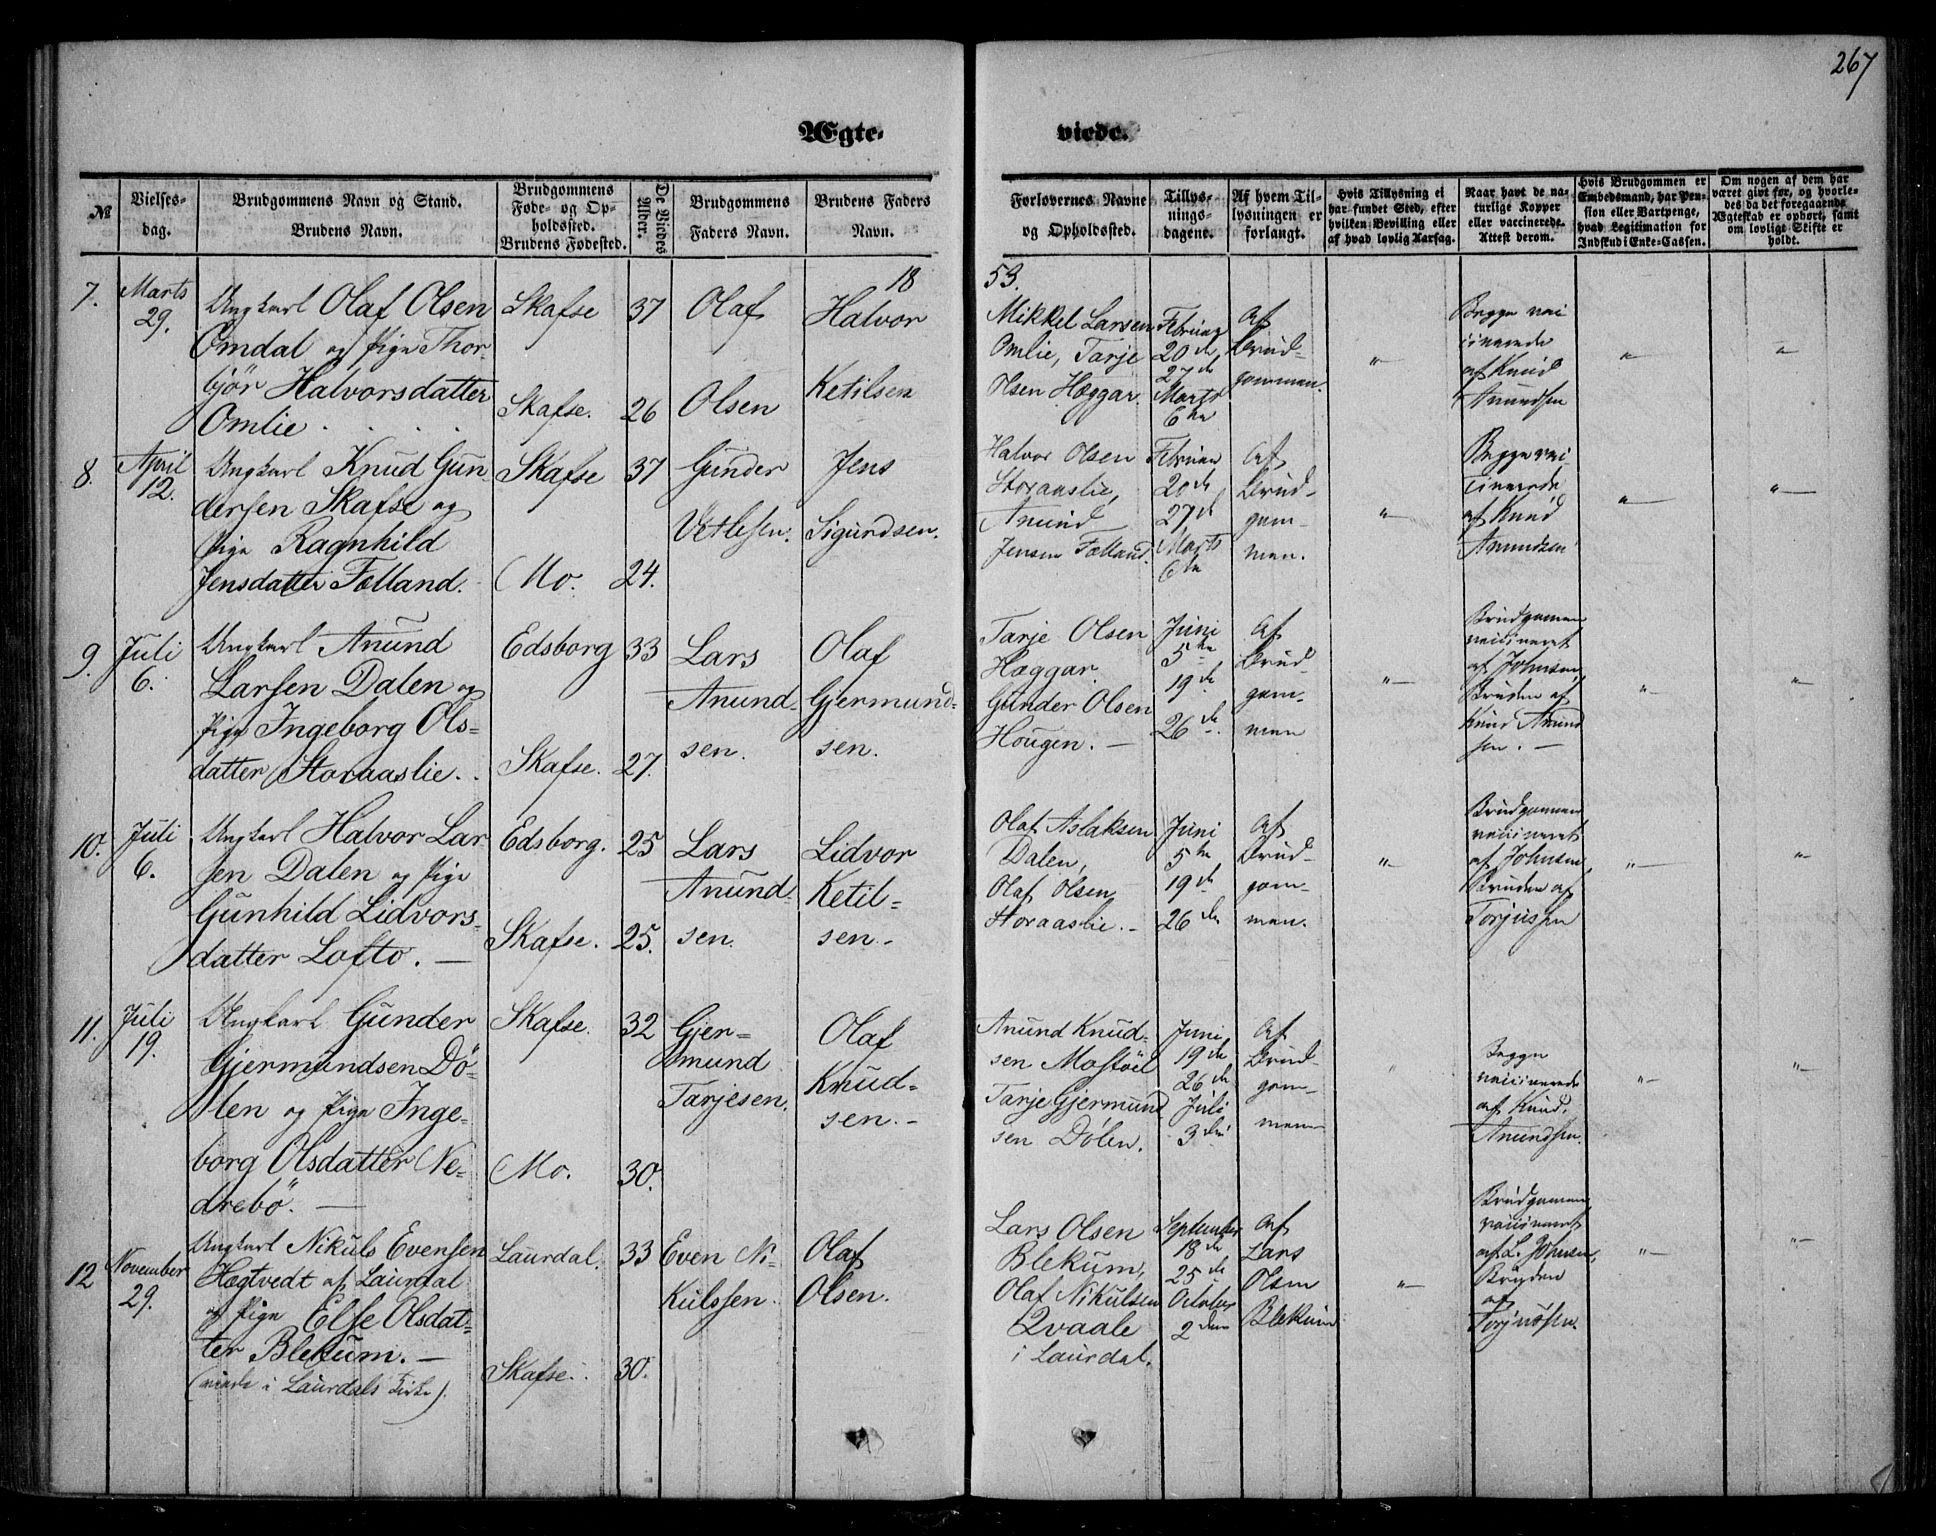 267
Ægte-
viede.
№
Vielses-
dag.
Brudgommens Navn og Stand.
Brudens Navn.
Brudgommens
Føde- og Op-
holdssted.
Brudens Fødested.
De Viedes
Alder.
Brudgommens
Faders Navn.
Brudens Faders
Navn.
Forlovernes Navne
og Opholdssted.
Tillys-
nings-
dagene.
Af hvem Til-
lysningen er
forlangt.
Hvis Tillysning ei
har fundet Sted, efter
hvilken Bevilling eller
af hvad lovlig Aarsag.
Naar havt de na-
turlige Kopper
eller vaccinerede.
Attest derom.
Hvis Brudgommen er
Embedsmand, har Pen-
sion eller Vartpenge,
hvad Legitimation for
Indskud i Enke-Cassen.
Om nogen af dem har
været givt før, og hvorle-
des da det foregaaende
Ægteskab er ophørt, samt
om lovligt Skifte er
holdt.
18
53.
7.
Marts
29.
Ungkarl Olaf Olsen
Omdal og Pige Thor-
björ Halvorsdatter
Omlie . . . .
Skafse
Skafse.
37
26
Olaf
Olsen
Halvor
Ketilsen
Mikkel Larsen
Omlie, Tarje
Olsen Hæggar.
Februar
20de,
27de
Marts
6te
Af
Brud-
gommen.
"
Begge vac
cinerede
af Knud
Anundsen
"
"
8.
April
12.
Ungkarl Knud Gun-
dersen Skafse og
Pige Ragnhild
Jensdatter Fælland.
Skafse
Mo.
37
24.
Gunder
Vetlesen.
Jens
Sigurdsen.
Halvor Olsen
Storaaslie,
Anund
Jensen Fælland.
Februar
20de
27de
Marts
6te
Af
Brud-
gom-
men.
"
Begge vac
cinerede
af Knud
Anundsen
"
"
9.
Juli
6.
Ungkarl Anund
Larsen Dalen og
Pige Ingeborg Ols-
datter Storaaslie.
Edsborg
Skafse.
33
27.
Lars
Anund-
sen.
Olaf
Gjermund-
sen.
Tarje Olsen
Hæggar.
Gunder Olsen
Hougen. —
Juni
5te
19de
26de.
Af
Brud
gom-
men
"
Brudgommen
vaccineret
af Johnsen,
Bruden af
Knud Anund
sen. —
"
"
10.
Juli
6.
Ungkarl Halvor Lar
sen Dalen og Pige
Gunhild Lidvors-
datter Lofto. —
Edsborg.
Skafse.
25
25.
Lars
Anund-
sen.
Lidvor
Ketil-
sen.-
Olaf Aslaksen
Dalen,
Olaf Olsen
Storaaslie. -
Juni
5te
19de
26de
Af
Brud-
gom-
men.
"
Brudgommen
vaccineret
af Johnsen,
Bruden af
Torjussen
"
"
11.
Juli
19.
Ungkarl Gunder
Gjermundsen Dö-
len og Pige Inge-
borg Olsdatter Ne-
drebö. —
Skafse.
Mo.
32
30.
Gjer-
mund
Tarjesen.
Olaf
Knud-
sen.-
Anund Knud-
sen Mostöel
Tarje Gjermund
sen Dölen.
Juni
19de
26de
Juli
3die
Af
Brud-
gom-
men
"
Begge
vaccinerede
af Knud.
Anundsen.
"
"
12
November
29.
Ungkarl Nikuls Evensen
Hægtvedt af Laurdal
og Pige Else Olsdat-
ter Blekum. —
(viede i Laurdals Kirke).
Laurdal.
Skafse.
33
30.
Even Ni-
kulssen.
Olaf
Olsen.
Lars Olsen
Blekum,
Olaf Nikulsen
Qvaale
i Laurdal.
September
18de
25de
October
2den
Af
Lars
Olsen
Blekum
"
Brudgommen
vaccineret
af L. Johnsen,
Bruden
af
Torjussen.
"
"